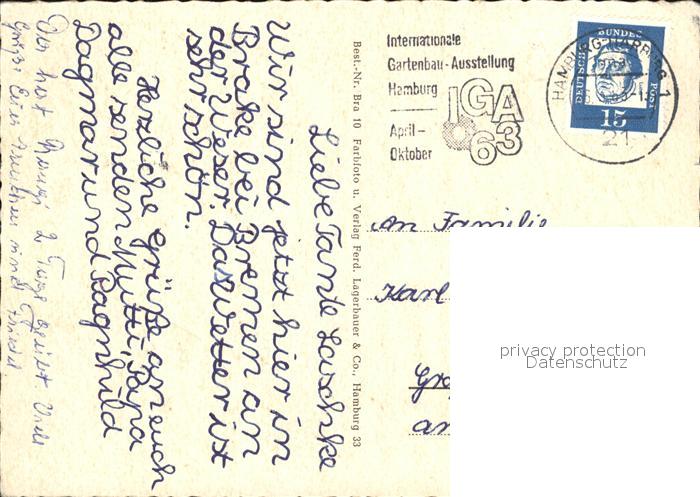 Internationale
Gartenbau-Ausstellung
Hamburg
IGA
63
April –
Oktober
HAMBURG-HARBURG 1
DEUTSCHE BUNDESPOST
15
21
Liebe Tante Laschke
Wir sind jetzt hier in
Brake bei Bremen an
der Weser. Das Wetter ist
sehr schön.
Herzliche Grüße an euch
alle senden Mutti, Papa
Dagmar und Ragnhild
Best.-Nr. Bra 10 Farbfoto u. Verlag Ferd. Lagerbauer & Co., Hamburg 33
An Familie
Karl
an
privacy protection
Datenschutz